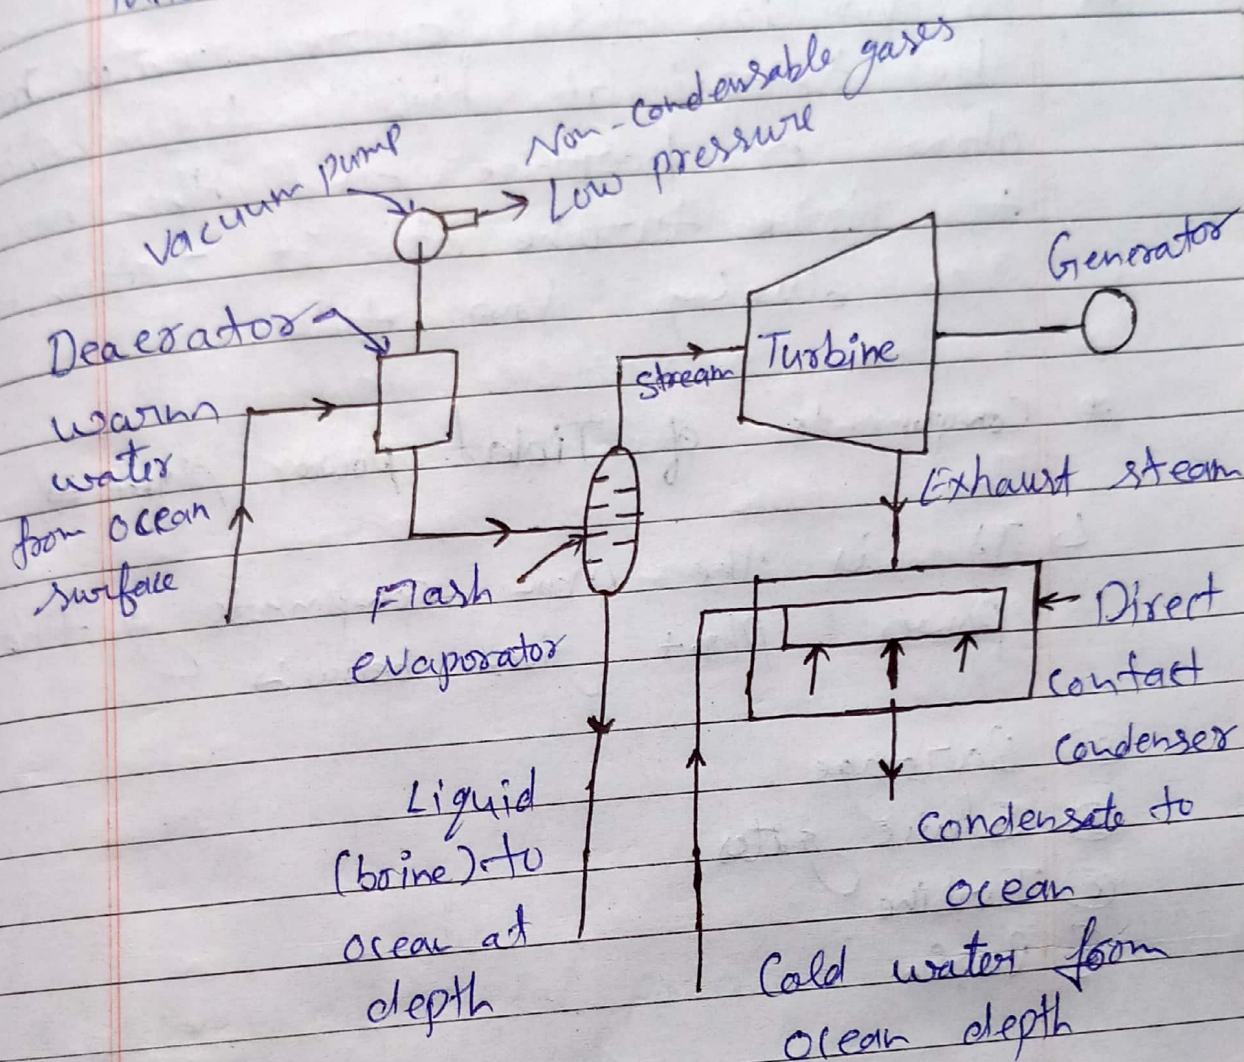 Non-condensable gases
Low pressure
Vacuum pump
Generator
Deaerator
Turbine
stream
warm
water
from ocean
surface
Exhaust steam
Flash
evaporator
Direct
contact
condenser
Liquid
(brine) to
ocean at
depth
condensate to
ocean
Cold water from
ocean depth